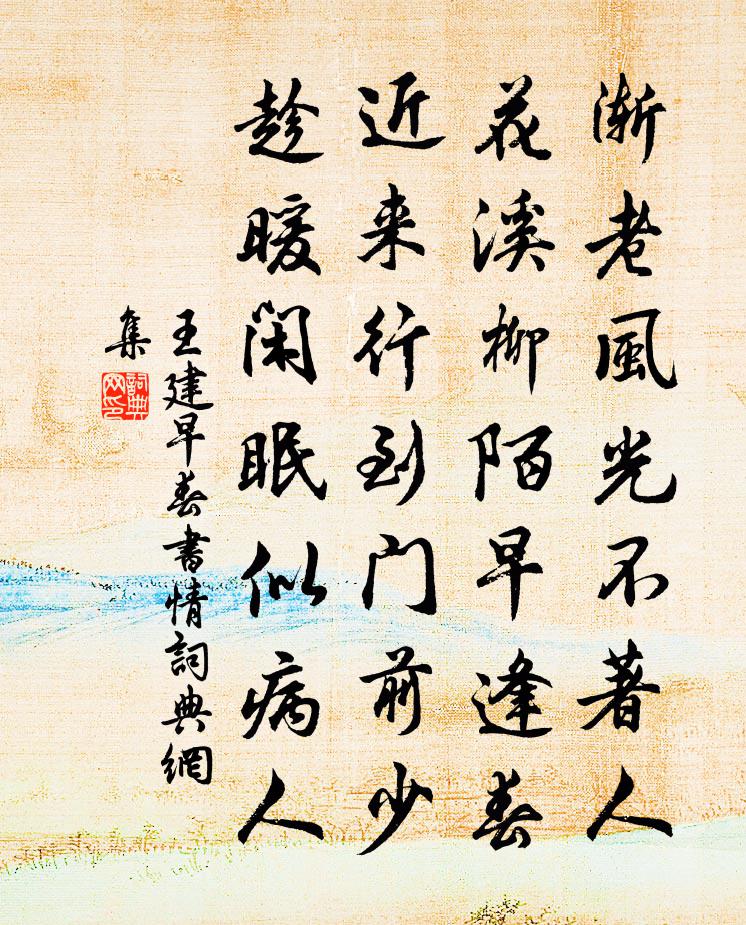 渐老風光不著人
花溪柳陌早逢春
近来行到门前少
趁暖闲眠似病人
王建早春書情詞典網
集
詞典
网印